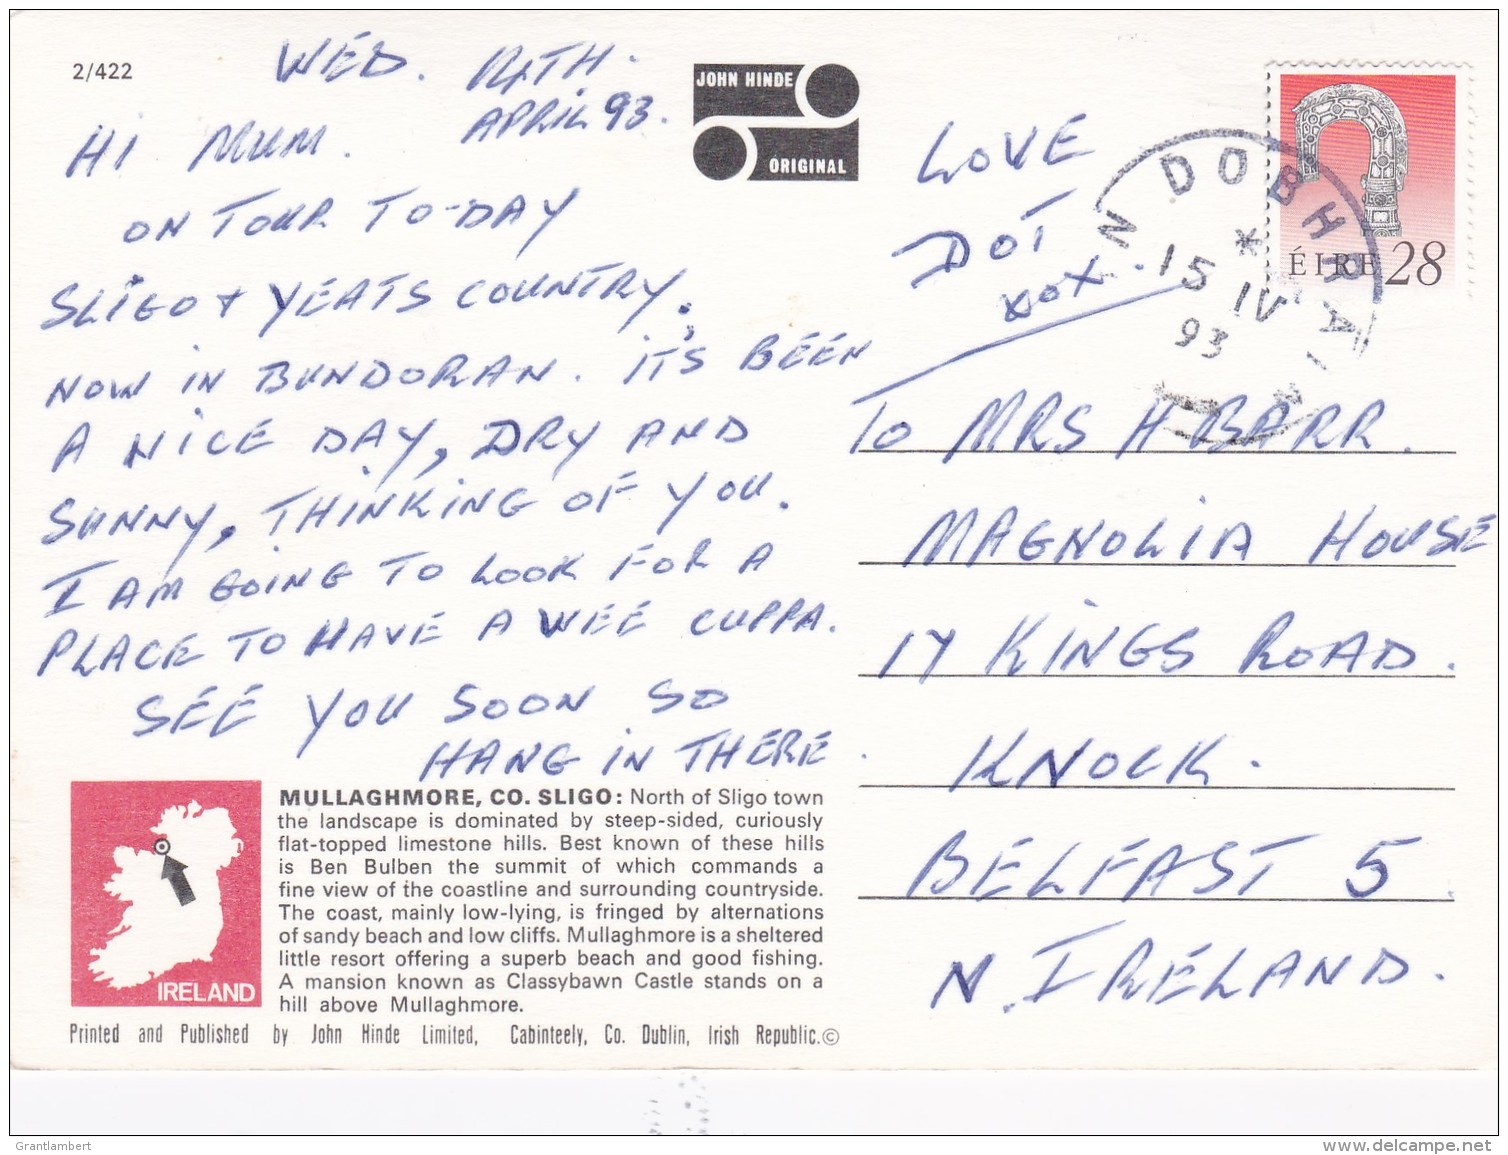 2/422
WED. 14TH.
APRIL 93.
HI MUM.
ON TOUR TO-DAY
SLIGO + YEATS COUNTRY.
NOW IN BUNDORAN. IT'S BEEN
A NICE DAY, DRY AND
SUNNY, THINKING OF YOU.
I AM GOING TO LOOK FOR A
PLACE TO HAVE A WEE CUPPA.
SEE YOU SOON SO
HANG IN THERE.
JOHN HINDE
ORIGINAL
LOVE
DOT
XOX.
ÉIRE 28
N DOBHRÁIN
15
IV
93
TO MRS H BARR.
MAGNOLIA HOUSE
17 KINGS ROAD.
KNOCK.
BELFAST 5
N. IRELAND.
IRELAND
MULLAGHMORE, CO. SLIGO: North of Sligo town
the landscape is dominated by steep-sided, curiously
flat-topped limestone hills. Best known of these hills
is Ben Bulben the summit of which commands a
fine view of the coastline and surrounding countryside.
The coast, mainly low-lying, is fringed by alternations
of sandy beach and low cliffs. Mullaghmore is a sheltered
little resort offering a superb beach and good fishing.
A mansion known as Classybawn Castle stands on a
hill above Mullaghmore.
Printed and Published by John Hinde Limited, Cabinteely, Co. Dublin, Irish Republic.©
Grantlambert
https://www.delcampe.net